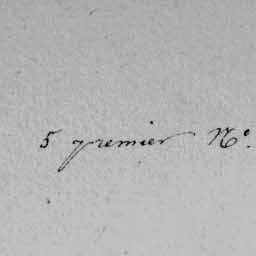 5 premier N°.